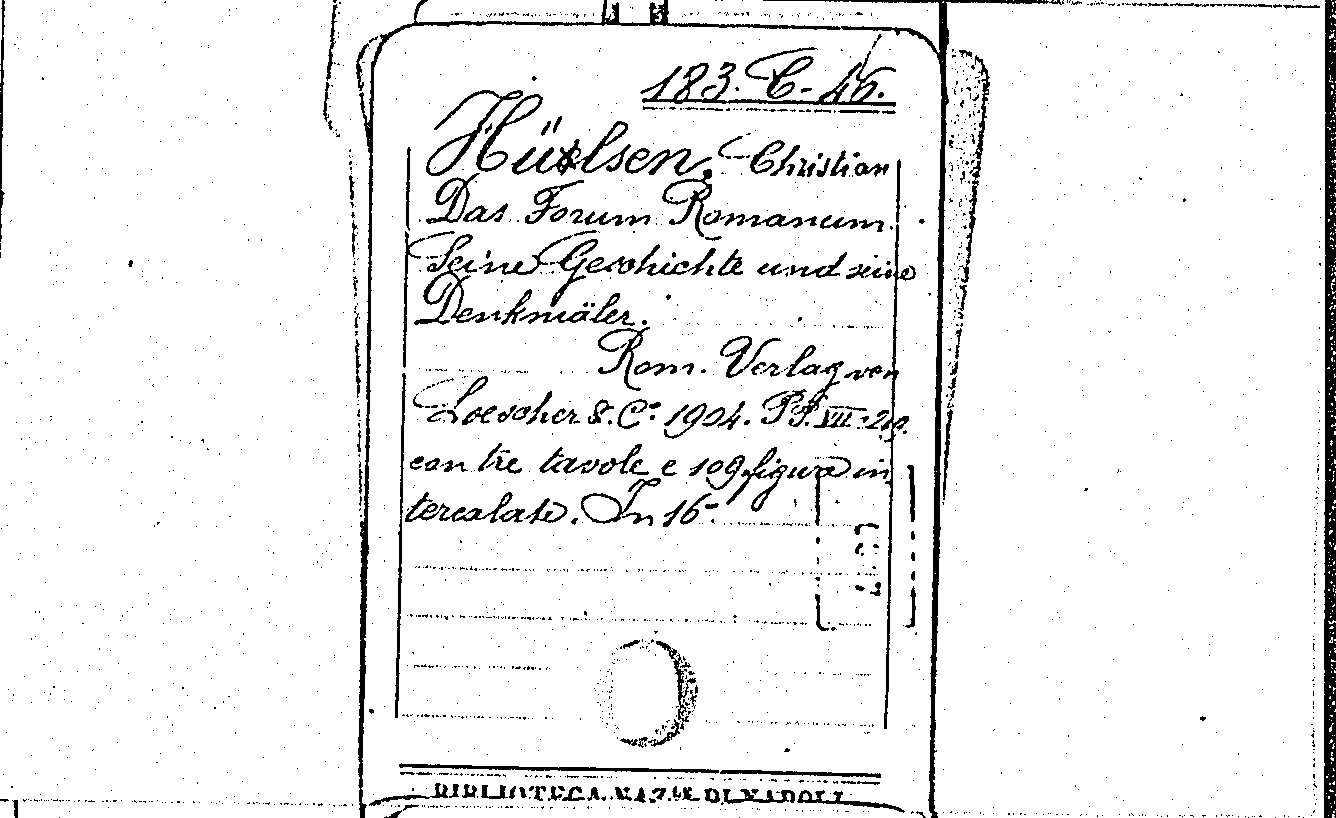 183. C- 46.
Hülsen, Christian
Das Forum Romanum.
Seine Geschichte und seine
Denkmäler.
Rom. Verlag von
Loescher & C.º 1904. PP. VII-219.
con tre tavole e 109 figure in
tercalate. In 16º.
BIBLIOTECA NAZ.LE DI NAPOLI